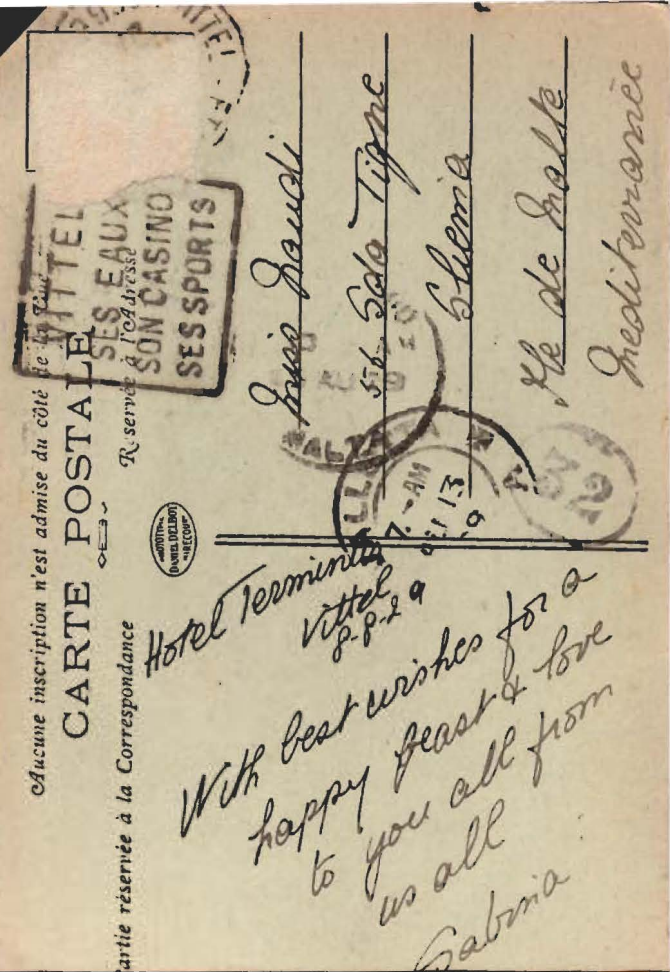 Aucune inscription n'est admise du côté de la Vue
CARTE POSTALE
Partie réservée à la Correspondance
Reservée à l'Adresse
VITTEL
VITTEL
SES EAUX
SON CASINO
SES SPORTS
DANIEL DELBOY
MIRECOURT
Hotel Terminus
Vittel
8-8-29
With best wishes for a
happy feast & love
to you all from
us all
Sabina
Miss Naudi
56 Sda Tigne
Sliema
Ile de Malte
Mediterranée
MALTA
AM
13